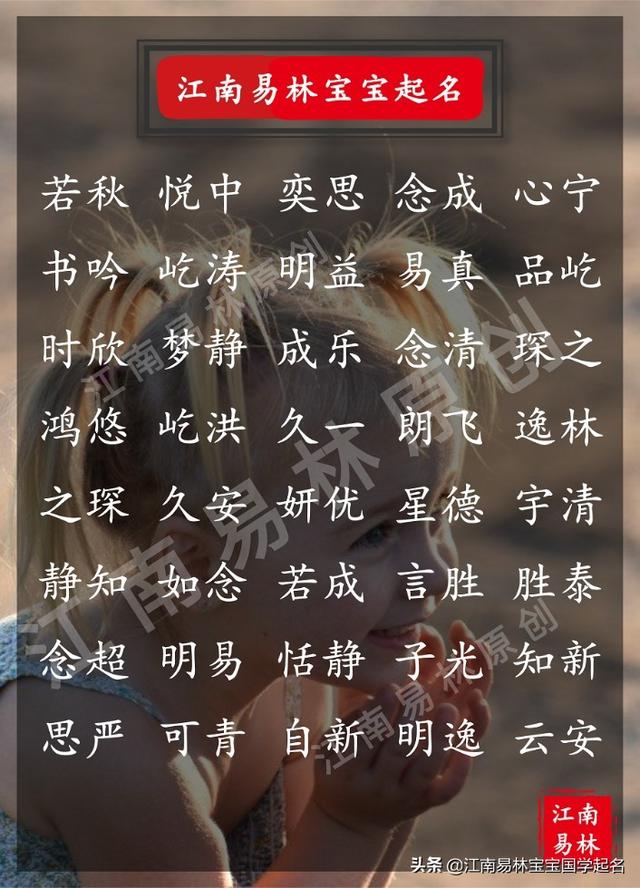 江南易林宝宝起名
若秋 悦中 奕思 念成 心宁
书吟 屹涛 明益 易真 品屹
时欣 梦静 成乐 念清 琛之
鸿悠 屹洪 久一 朗飞 逸林
之琛 久安 妍优 星德 宇清
静知 如念 若成 言胜 胜泰
念超 明易 恬静 子光 知新
思严 可青 自新 明逸 云安
江南易林原创
江南易林原创
江南易林原创
江南
易林
头条 @江南易林宝宝国学起名